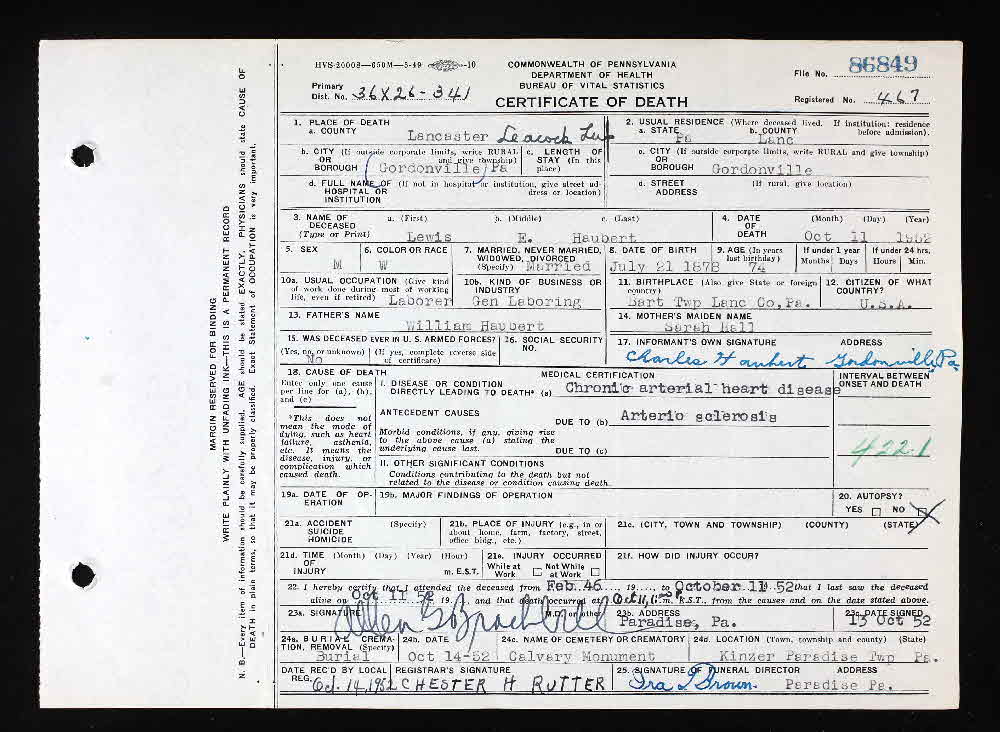 HVS-20002—650M—5-49 —10
COMMONWEALTH OF PENNSYLVANIA
DEPARTMENT OF HEALTH
BUREAU OF VITAL STATISTICS
CERTIFICATE OF DEATH
File No. 86849
Primary
Dist. No. 36X26-341
Registered No. 467
MARGIN RESERVED FOR BINDING
WRITE PLAINLY WITH UNFADING INK—THIS IS A PERMANENT RECORD
N. B.—Every item of information should be carefully supplied. AGE should be stated EXACTLY. PHYSICIANS should state CAUSE OF
DEATH in plain terms, so that it may be properly classified. Exact Statement of OCCUPATION is very important.
1. PLACE OF DEATH
a. COUNTY Lancaster Leacock Twp
2. USUAL RESIDENCE (Where deceased lived. If institution: residence before admission).
a. STATE Pa b. COUNTY Lanc
b. CITY (If outside corporate limits, write RURAL and give township)
OR
BOROUGH Gordonville Pa
c. LENGTH OF STAY (in this place)
c. CITY (If outside corporate limits, write RURAL and give township)
OR
BOROUGH Gordonville
d. FULL NAME OF (If not in hospital or institution, give street address or location)
HOSPITAL OR
INSTITUTION
d. STREET (If rural, give location)
ADDRESS
3. NAME OF DECEASED
(Type or Print)
a. (First) b. (Middle) c. (Last)
Lewis E. Haubert
4. DATE OF DEATH (Month) (Day) (Year)
Oct 11 1952
5. SEX
M
6. COLOR OR RACE
W
7. MARRIED, NEVER MARRIED, WIDOWED, DIVORCED
(Specify) Married
8. DATE OF BIRTH
July 21 1878
9. AGE (In years last birthday)
74
If under 1 year
Months Days
If under 24 hrs.
Hours Min.
10a. USUAL OCCUPATION (Give kind of work done during most of working life, even if retired) Laborer
10b. KIND OF BUSINESS OR INDUSTRY
Gen Laboring
11. BIRTHPLACE (Also give State or foreign country)
Bart Twp Lanc Co, Pa.
12. CITIZEN OF WHAT COUNTRY?
U.S.A.
13. FATHER'S NAME
William Haubert
14. MOTHER'S MAIDEN NAME
Sarah Hall
15. WAS DECEASED EVER IN U. S. ARMED FORCES?
(Yes, no, or unknown) (If yes, complete reverse side of certificate)
No
16. SOCIAL SECURITY NO.
17. INFORMANT'S OWN SIGNATURE ADDRESS
Charles Haubert Gordonville, Pa
18. CAUSE OF DEATH
Enter only one cause per line for (a), (b), and (c)
*This does not mean the mode of dying, such as heart failure, asthenia, etc. It means the disease, injury, or complication which caused death.
MEDICAL CERTIFICATION
INTERVAL BETWEEN ONSET AND DEATH
I. DISEASE OR CONDITION
DIRECTLY LEADING TO DEATH* (a) Chronic arterial heart disease
ANTECEDENT CAUSES
DUE TO (b) Arterio sclerosis
Morbid conditions, if any, giving rise to the above cause (a) stating the underlying cause last.
DUE TO (c)
422.1
II. OTHER SIGNIFICANT CONDITIONS
Conditions contributing to the death but not related to the disease or condition causing death.
19a. DATE OF OPERATION
19b. MAJOR FINDINGS OF OPERATION
20. AUTOPSY?
YES NO X
21a. ACCIDENT (Specify)
SUICIDE
HOMICIDE
21b. PLACE OF INJURY (e.g., in or about home, farm, factory, street, office bldg., etc.)
21c. (CITY, TOWN AND TOWNSHIP) (COUNTY) (STATE)
21d. TIME (Month) (Day) (Year) (Hour)
OF
INJURY m. E.S.T.
21e. INJURY OCCURRED
While at Work Not While at Work
21f. HOW DID INJURY OCCUR?
22. I hereby certify that I attended the deceased from Feb 46, 19..., to October 11 52 that I last saw the deceased
alive on Oct 11 52, 19..., and that death occurred at m. E.S.T., from the causes and on the date stated above.
23a. SIGNATURE
(M.D. or other)
23b. ADDRESS
Paradise, Pa.
23c. DATE SIGNED
13 Oct 52
24a. BURIAL, CREMATION, REMOVAL (Specify)
Burial
24b. DATE
Oct 14-52
24c. NAME OF CEMETERY OR CREMATORY
Calvary Monument
24d. LOCATION (Town, township and county) (State)
Kinzer Paradise Twp Pa.
DATE REC'D BY LOCAL REG. Oct. 14, 1952
REGISTRAR'S SIGNATURE
CHESTER H RUTTER
25. SIGNATURE OF FUNERAL DIRECTOR ADDRESS
Ira L Brown Paradise Pa.